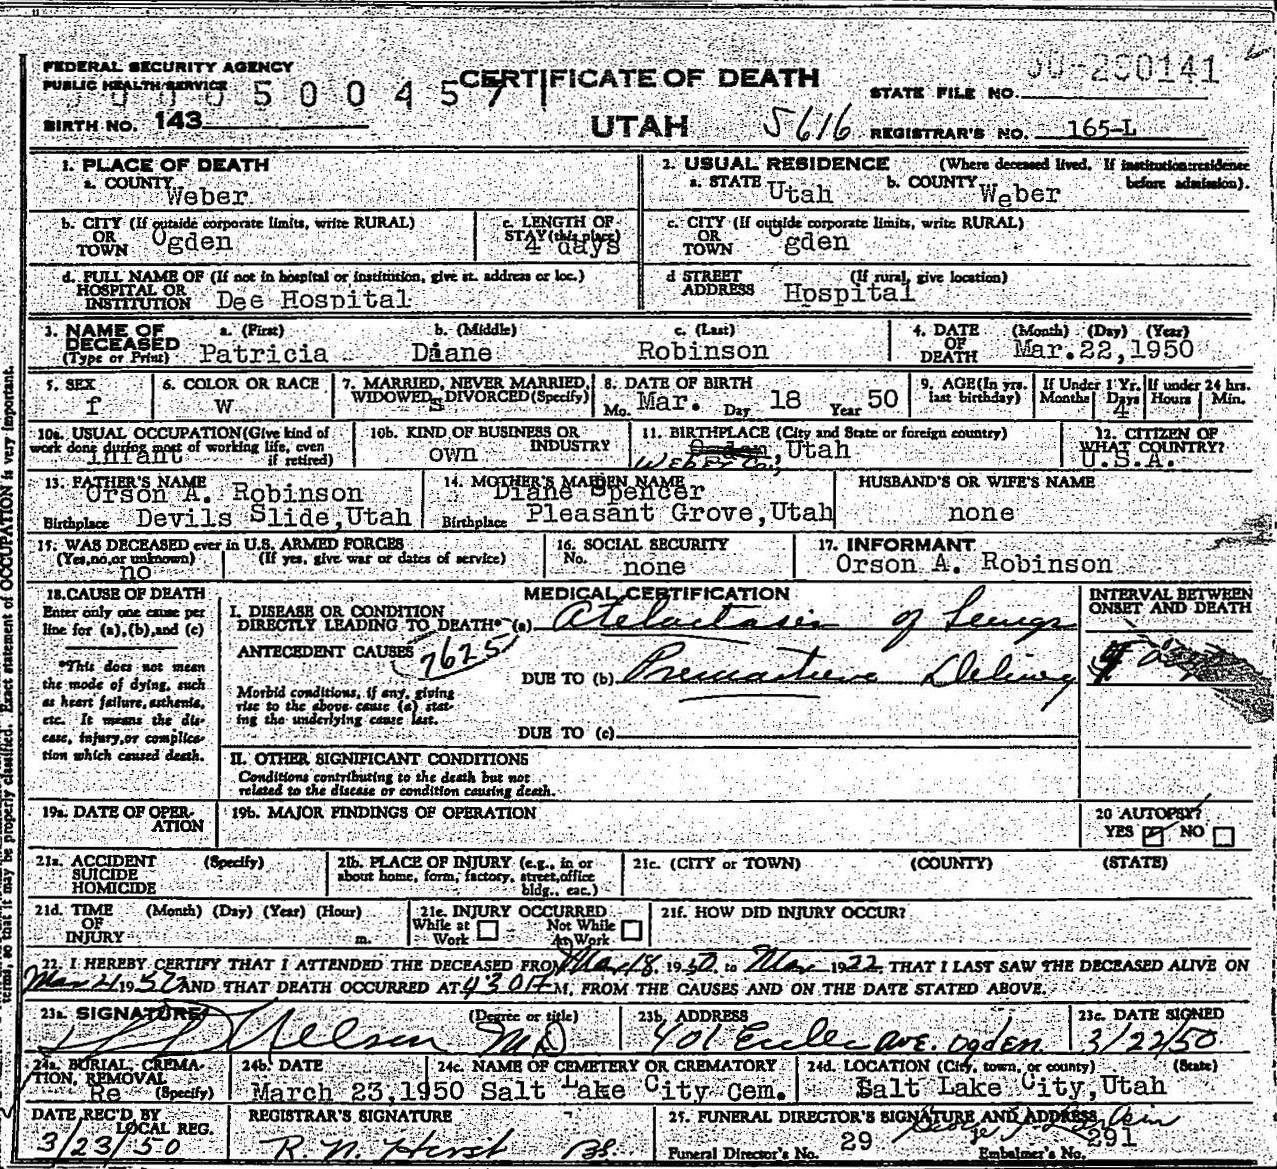 FEDERAL SECURITY AGENCY
PUBLIC HEALTH SERVICE
CERTIFICATE OF DEATH
STATE FILE NO.
BIRTH NO. 143
UTAH 5616 REGISTRAR'S NO. 165-L
1. PLACE OF DEATH
a. COUNTY Weber
2. USUAL RESIDENCE (Where deceased lived. If institution: residence before admission).
a. STATE Utah b. COUNTY Weber
b. CITY (If outside corporate limits, write RURAL) OR TOWN Ogden
c. LENGTH OF STAY (this place) 4 days
c. CITY (If outside corporate limits, write RURAL) OR TOWN Ogden
d. FULL NAME OF (If not in hospital or institution, give st. address or loc.) HOSPITAL OR INSTITUTION Dee Hospital
d STREET ADDRESS (If rural, give location) Hospital
3. NAME OF DECEASED (Type or Print) a. (First) Patricia b. (Middle) Diane c. (Last) Robinson
4. DATE OF DEATH (Month) (Day) (Year) Mar. 22, 1950
5. SEX f
6. COLOR OR RACE W
7. MARRIED, NEVER MARRIED, WIDOWED, DIVORCED (Specify) s
8. DATE OF BIRTH Mo. Mar. Day 18 Year 50
9. AGE (In yrs. last birthday) If Under 1 Yr. Months Days 4 If under 24 hrs. Hours Min.
10a. USUAL OCCUPATION (Give kind of work done during most of working life, even if retired) infant
10b. KIND OF BUSINESS OR INDUSTRY own
11. BIRTHPLACE (City and State or foreign country) Weber Co., Utah
12. CITIZEN OF WHAT COUNTRY? U.S.A.
13. FATHER'S NAME Orson A. Robinson
Birthplace Devils Slide, Utah
14. MOTHER'S MAIDEN NAME Diane Spencer
Birthplace Pleasant Grove, Utah
HUSBAND'S OR WIFE'S NAME
none
15. WAS DECEASED ever in U.S. ARMED FORCES
(Yes, no, or unknown) (If yes, give war or dates of service)
no
16. SOCIAL SECURITY No. none
17. INFORMANT
Orson A. Robinson
18. CAUSE OF DEATH
Enter only one cause per line for (a), (b), and (c)
*This does not mean the mode of dying, such as heart failure, asthenia, etc. It means the disease, injury, or complication which caused death.
MEDICAL CERTIFICATION
INTERVAL BETWEEN ONSET AND DEATH
I. DISEASE OR CONDITION DIRECTLY LEADING TO DEATH* (a) Atelectasis of Lungs
ANTECEDENT CAUSES 7625
Morbid conditions, if any, giving rise to the above cause (a) stating the underlying cause last.
DUE TO (b) Premature Delivery
DUE TO (c)
II. OTHER SIGNIFICANT CONDITIONS
Conditions contributing to the death but not related to the disease or condition causing death.
19a. DATE OF OPERATION
19b. MAJOR FINDINGS OF OPERATION
20 AUTOPSY?
YES NO
21a. ACCIDENT SUICIDE HOMICIDE (Specify)
21b. PLACE OF INJURY (e.g., in or about home, form, factory, street, office bldg., eac.)
21c. (CITY or TOWN) (COUNTY) (STATE)
21d. TIME OF INJURY (Month) (Day) (Year) (Hour) m.
21e. INJURY OCCURRED
While at Work Not While At Work
21f. HOW DID INJURY OCCUR?
22. I HEREBY CERTIFY THAT I ATTENDED THE DECEASED FROM Mar 18, 1950, to Mar 1922, THAT I LAST SAW THE DECEASED ALIVE ON
1950 AND THAT DEATH OCCURRED AT 430 M., FROM THE CAUSES AND ON THE DATE STATED ABOVE.
23a. SIGNATURE Nelson (Degree or title) MD
23b. ADDRESS 401 Ave. Ogden
23c. DATE SIGNED 3/22/50
24a. BURIAL, CREMATION, REMOVAL (Specify) Re
24b. DATE March 23, 1950
24c. NAME OF CEMETERY OR CREMATORY Salt Lake City Cem.
24d. LOCATION (City, town, or county) (State) Salt Lake City, Utah
DATE REC'D BY LOCAL REG.
3/23/50
REGISTRAR'S SIGNATURE
R. N. Hirst
25. FUNERAL DIRECTOR'S SIGNATURE AND ADDRESS
George Larkin
Funeral Director's No. 29 Embalmer's No. 291